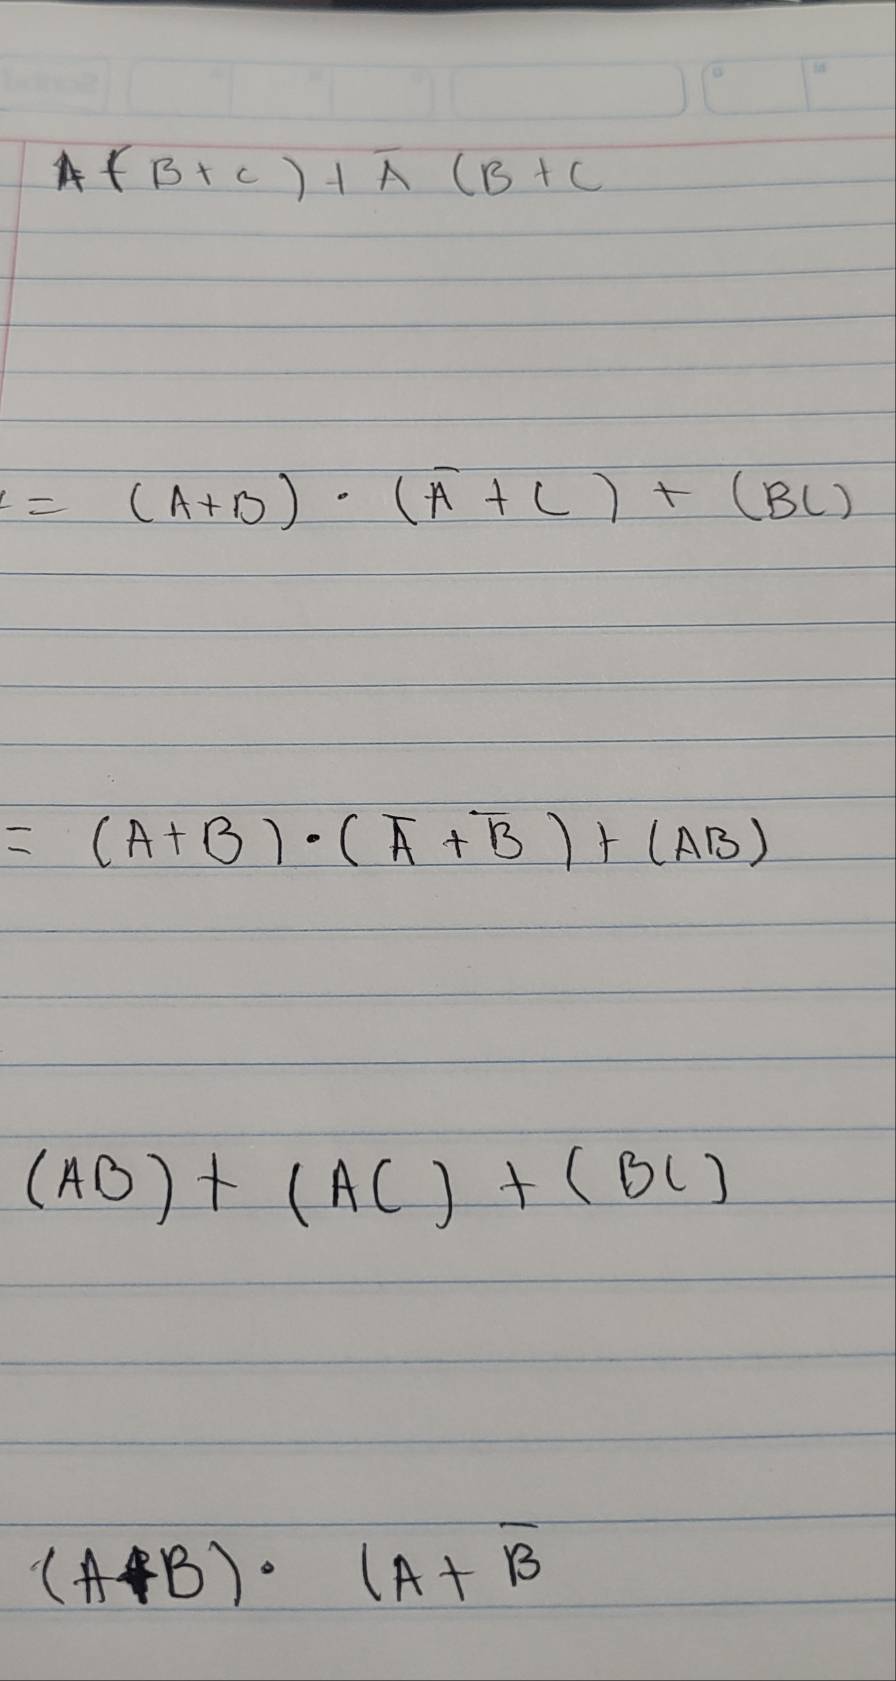 A(B+C)+Ā(B+C
= (A+B)·(Ā+C)+(BC)
= (A+B)·(Ā+B̄)+(AB)
(AB)+(AC)+(BC)
(A+B)·(A+B̄